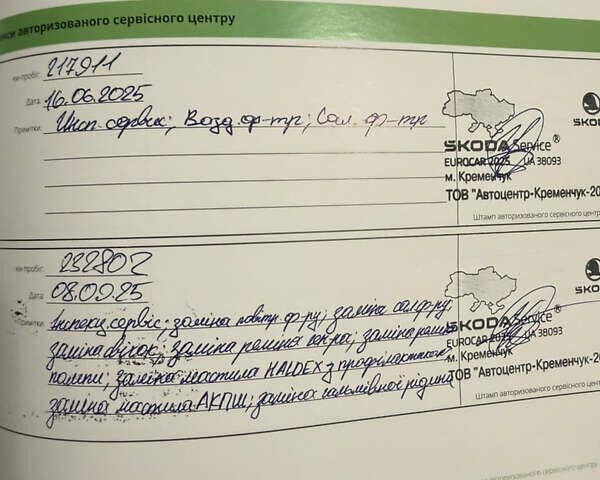 иси авторизованого сервісного центру
км-пробіг: 217911
Дата: 16.06.2025
Примітки: Инсп. сервіс; Возд. ф-тр; Сал. ф-тр
SKODA Service®
EUROCAR 2025 UA 38093
м. Кременчук
ТОВ "Автоцентр-Кременчук-20
Штамп авторизованого сервісного центру
км-пробіг: 232802
Дата: 08.09.25
Примітки: Інспекц. сервіс; заміна повітр. ф-ру; заміна сал ф-ру;
заміна свічок; заміна ременя генра; заміна ременя
помпи; заміна мастила HALDEX з профілактикою
заміна мастила АКПП; заміна гальмівної рідини
SKODA Service®
EUROCAR 2025 UA 38093
м. Кременчук
ТОВ "Автоцентр-Кременчук-20
Штамп авторизованого сервісного центр
авторизованого сервісного центру